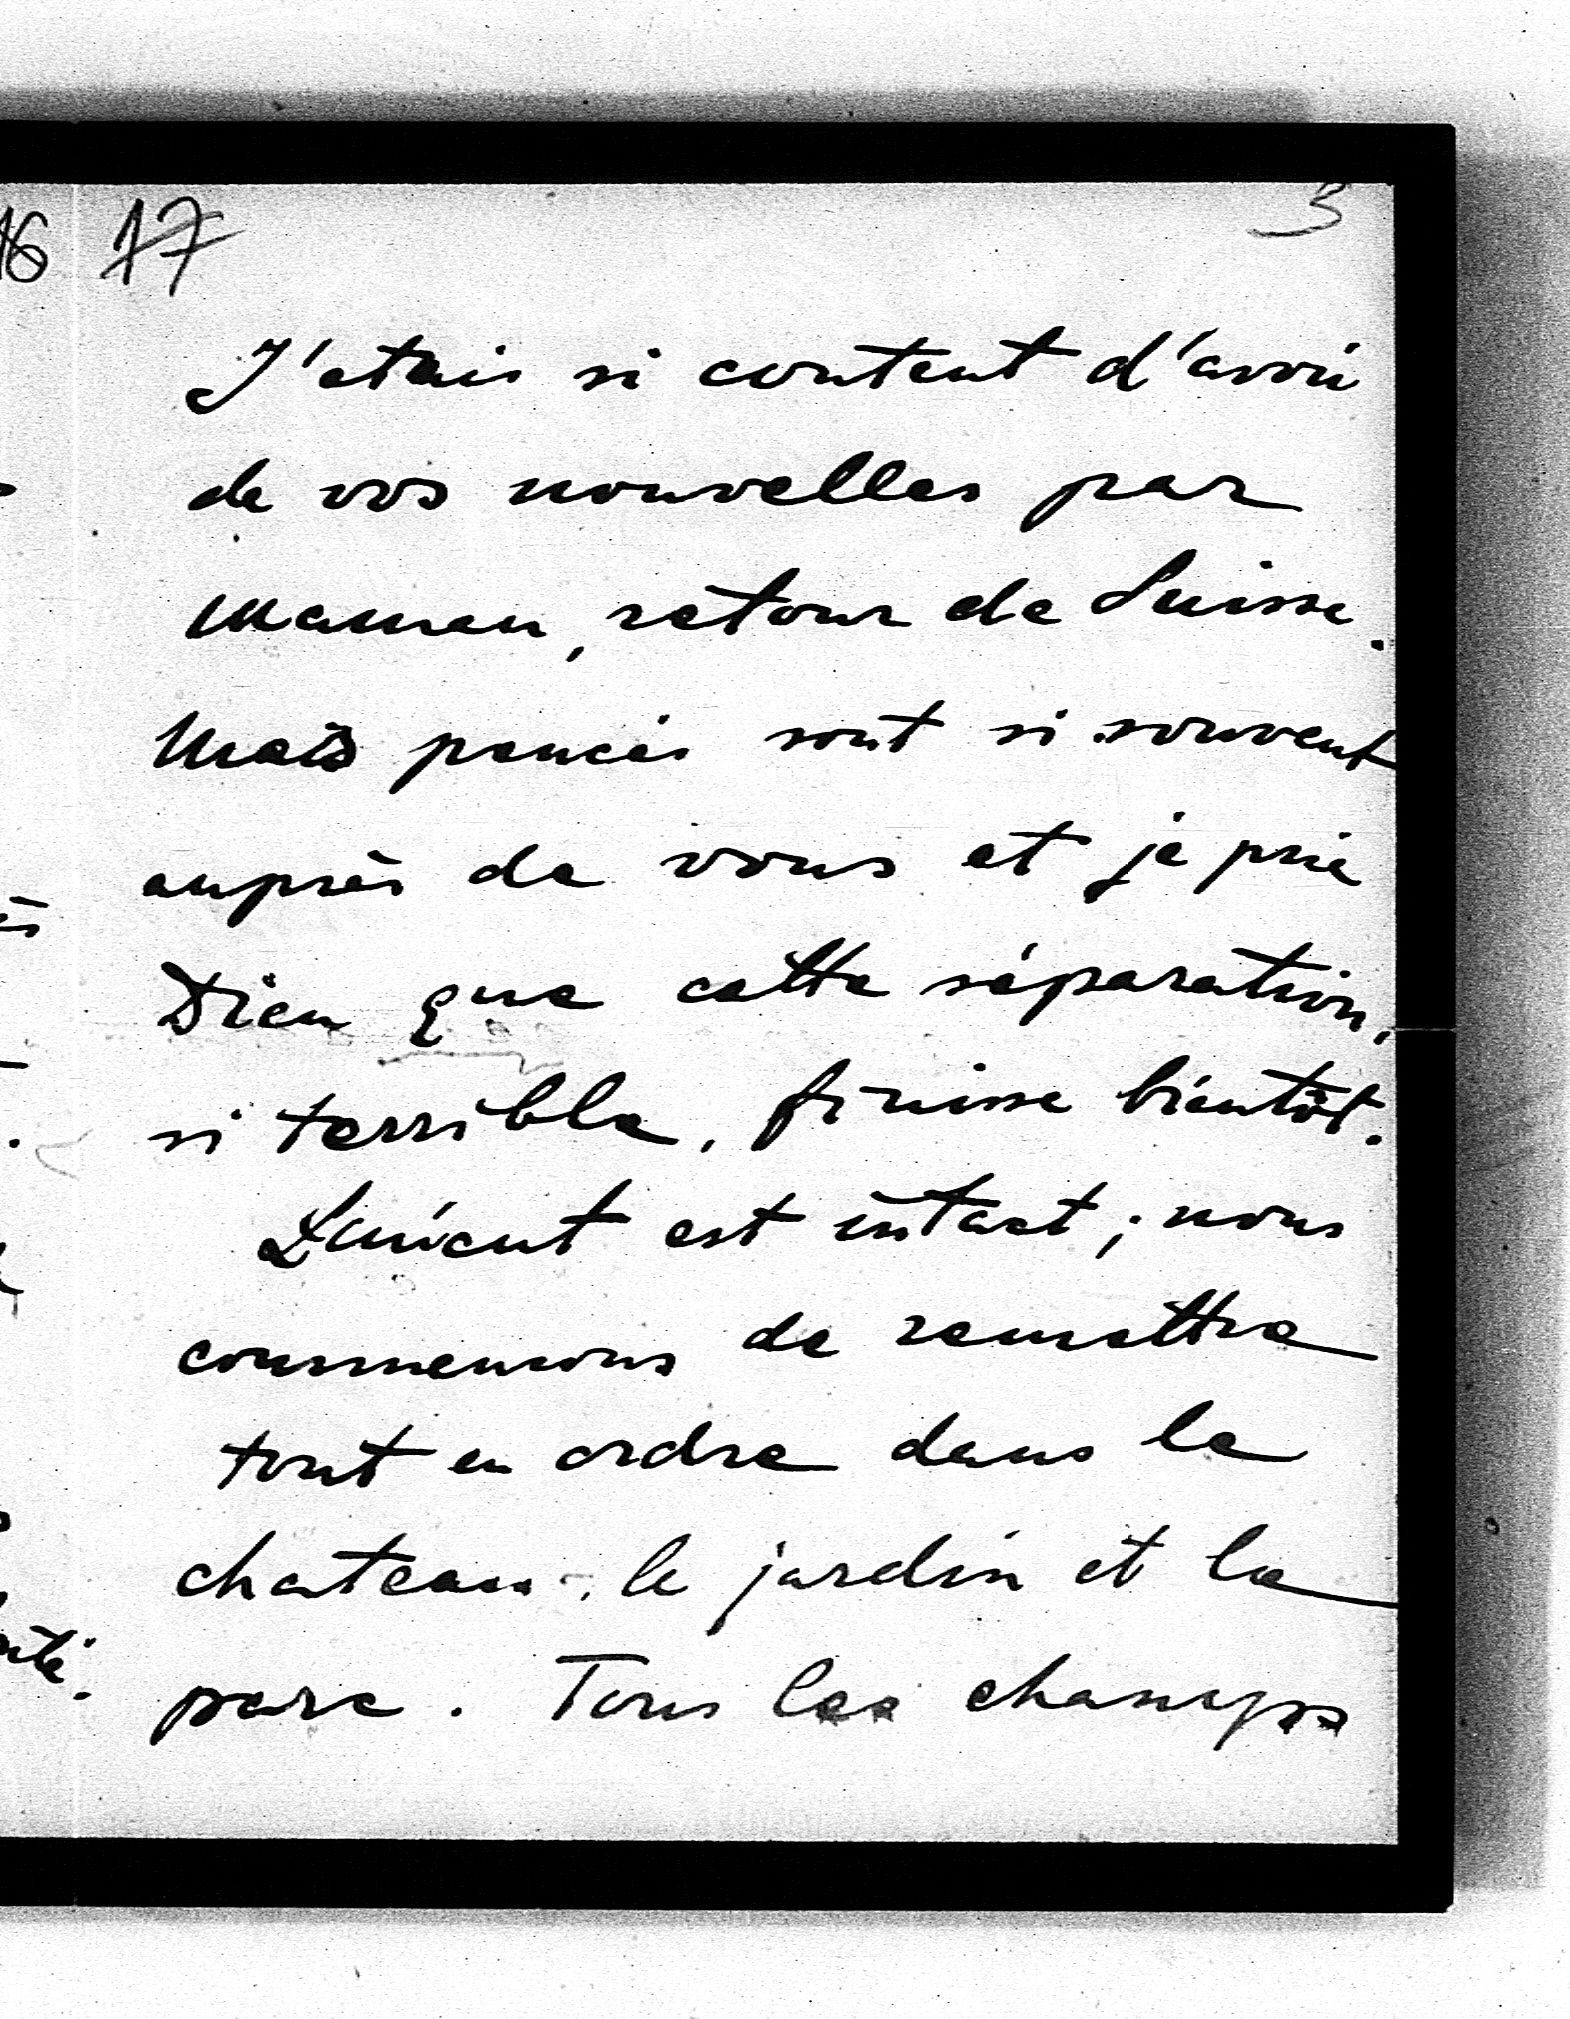 16 17 3
J'etais si content d'avoir
de vos nouvelles par
maman, retour de Suisse.
Mais pencés sont si souvent
auprès de vous et je prie
Dieu que cette séparation,
si terrible, finisse bientôt.
est intact; nous
commencons de remettre
tout en ordre dans le
chateau, le jardin et la
parc. Tous les champs